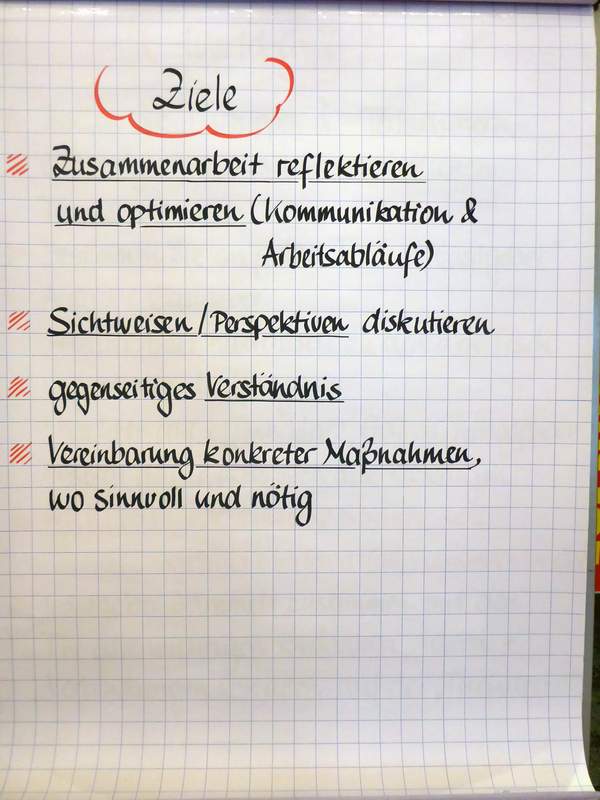 Ziele
Zusammenarbeit reflektieren
und optimieren (Kommunikation &
Arbeitsabläufe)
Sichtweisen/Perspektiven diskutieren
gegenseitiges Verständnis
Vereinbarung konkreter Maßnahmen,
wo sinnvoll und nötig